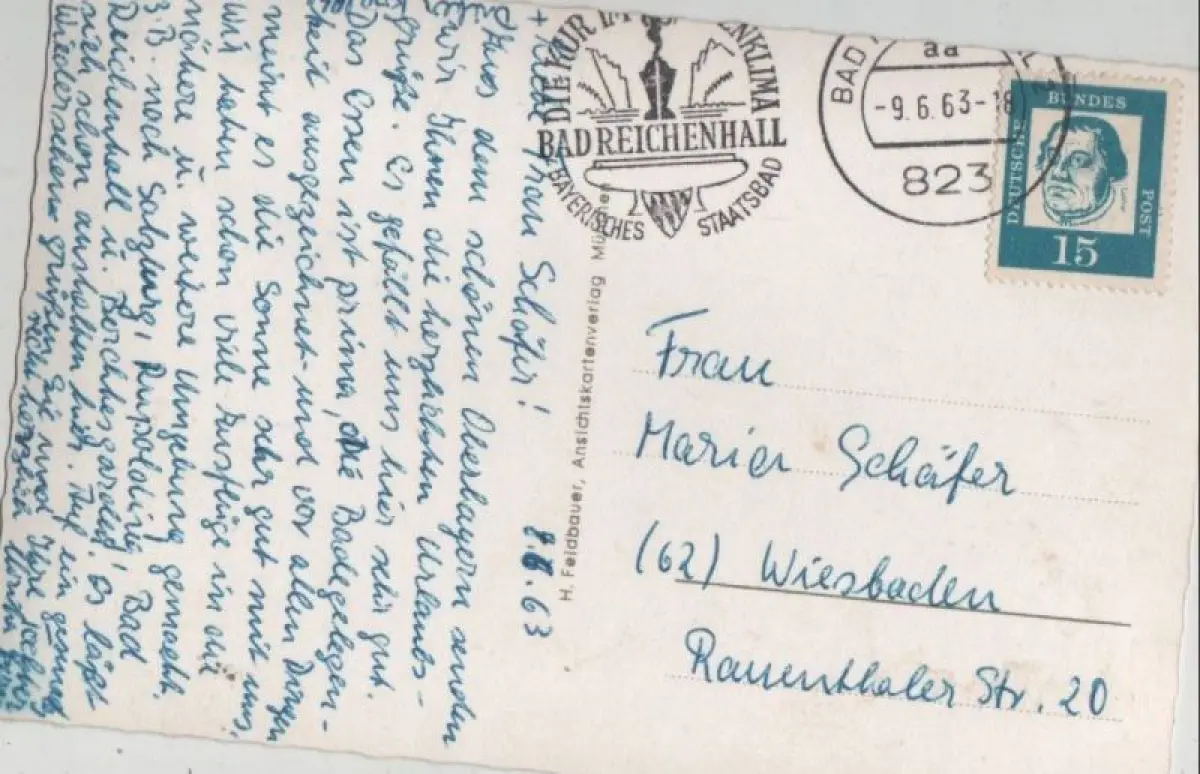 8.6.63
Frau Schäfer!
Aus dem schönen Oberbayern senden
wir Ihnen die herzlichsten Urlaubs-
grüße. Es gefällt uns hier sehr gut.
Das Essen ist prima, die Badegelegen-
heit ausgezeichnet – und vor allen Dingen
meint es die Sonne sehr gut mit uns.
Wir haben schon viele Ausflüge in die
nähere u. weitere Umgebung gemacht,
z.B. nach Salzburg, Ruhpolding, Bad
Reichenhall u. Berchtesgaden, es läßt
sich schon aushalten hier. Auf ein gesundes
Wiedersehen grüßen Sie und Ihre
recht herzlich
H. Feldbauer, Ansichtskartenverlag München
DIE KUR IM ALPENKLIMA
BAD REICHENHALL
BAYERISCHES STAATSBAD
BAD
aa
-9.6.63-18
823
DEUTSCHE BUNDES POST
15
Frau
Maria Schäfer
(62) Wiesbaden
Rauenthaler Str. 20